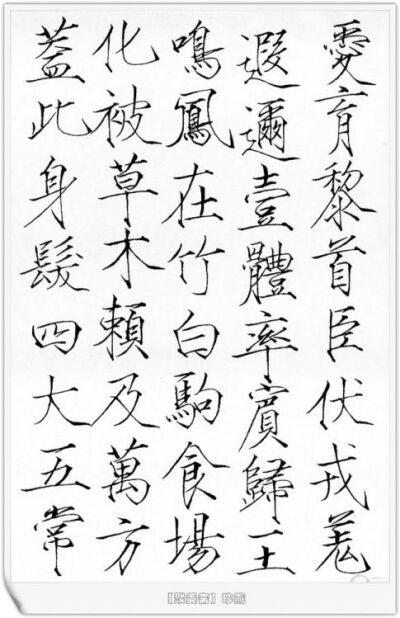 愛育黎首臣伏戎羌
遐邇壹體率賓歸王
鳴鳳在竹白駒食場
化被草木賴及萬方
蓋此身髮四大五常